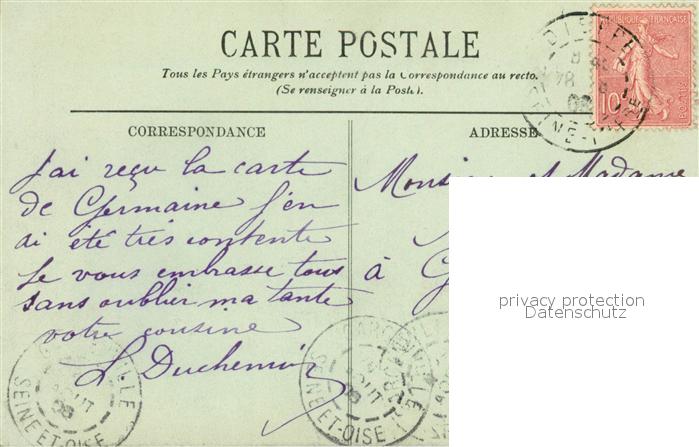 CARTE POSTALE
Tous les Pays étrangers n'acceptent pas la Correspondance au recto.
(Se renseigner à la Poste).
RÉPUBLIQUE FRANÇAISE
POSTES
10
CORRESPONDANCE
ADRESSE
J'ai reçu la carte
de Germaine j'en
ai été très contente
Je vous embrasse tous
sans oublier ma tante
votre cousine
L Duchemin
Monsieur et Madame
à G
privacy protection
Datenschutz
AOUT
08
SEINE ET-OISE
AOUT
08
SEINE ET-OISE